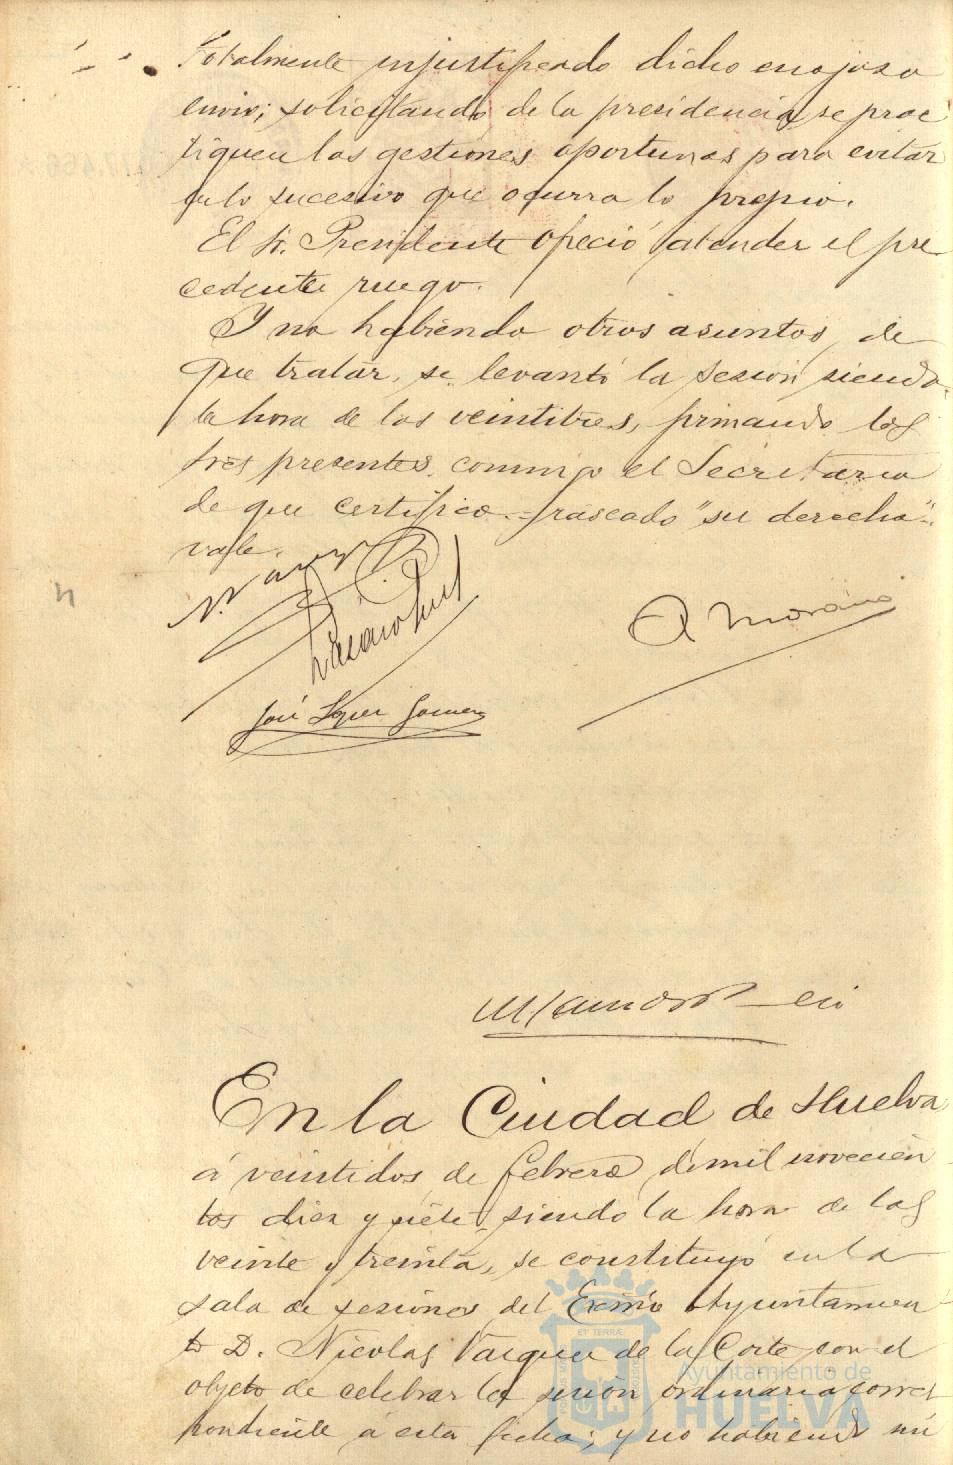 Totalmente injustificado dicho enojoso
envio; solicitando de la presidencia, se prac
tiquen las gestiones oportunas para evitar
en lo sucesivo que ocurra lo propio.
El Sr. Presidente ofreció atender el pre
cedente ruego.
Y no habiendo otros asuntos de
que tratar, se levantó la sesión siendo
la hora de las veintitres, firmando los
Sres presentes conmigo el Secretario
de que certifico.=rascado "su derecho".
vale.
A Morano
José López Gómez
En la Ciudad de Huelva,
á veintidos de febrero de mil novecien
tos diez y siete, siendo la hora de las
veinte y treinta, se constituyó en la
sala de sesiones del Excmo Ayuntamien
to D. Nicolas Vazquez de la Corte con el
objeto de celebrar la sesión ordinaria corres
pondiente á esta fecha; y no habiendo nú
ET TERRÆ
Ayuntamiento de
HUELVA